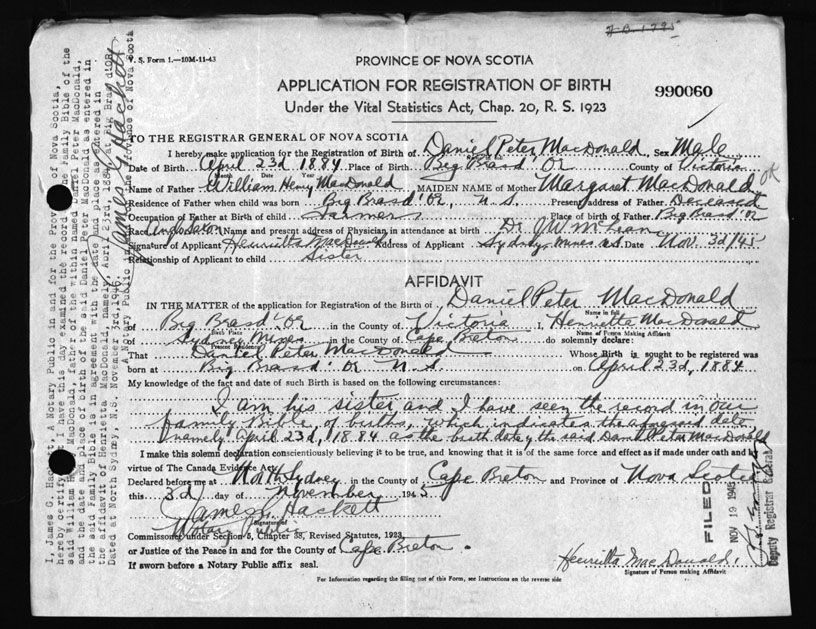 V. S. Form 1.—10M-11-43
PROVINCE OF NOVA SCOTIA
APPLICATION FOR REGISTRATION OF BIRTH
990060
Under the Vital Statistics Act, Chap. 20, R. S. 1923
TO THE REGISTRAR GENERAL OF NOVA SCOTIA
I hereby make application for the Registration of Birth of Daniel Peter MacDonald Sex Male
Date of Birth April 23d 1884 Place of Birth Big Brasd' Or County of Victoria
Month Date Year
Name of Father William Henry MacDonald MAIDEN NAME of Mother Margaret MacDonald
ok
Residence of Father when child was born Big Brasd' Or, N.S. Present address of Father Deceased
Occupation of Father at Birth of child Farmer Place of birth of Father Big Brasd' Or
Rad Anglo Saxon Name and present address of Physician in attendance at birth Dr. J W McLean
Signature of Applicant Henrietta MacDonald Address of Applicant Sydney Mines N.S. Date Nov. 3d/45
Relationship of Applicant to child Sister
AFFIDAVIT
IN THE MATTER of the application for Registration of the Birth of Daniel Peter MacDonald
Name in full
of Big Brasd' Or in the County of Victoria I, Henrietta MacDonald
Birth Place Name of Person Making Affidavit
of Sydney Mines in the County of Cape Breton do solemnly declare:
Present Residence
That Daniel Peter MacDonald Whose Birth is sought to be registered was
born at Big Brasd' Or N.S. on April 23d, 1884
My knowledge of the fact and date of such Birth is based on the following circumstances:
I am his sister and I have seen the record in our
family Bible, of births, which indicates the aforesaid date,
namely April 23d, 1884 as the birth date of the said Daniel Peter MacDonald
I make this solemn declaration conscientiously believing it to be true, and knowing that it is of the same force and effect as if made under oath and by
virtue of The Canada Evidence Act.
Declared before me at North Sydney in the County of Cape Breton and Province of Nova Scotia
this 3d day of November 1945
James G. Hackett
Signature of
Notary Public
Commissioner under Section 5, Chapter 38, Revised Statutes, 1923,
or Justice of the Peace in and for the County of Cape Breton.
If sworn before a Notary Public affix seal.
Henrietta MacDonald
Signature of Person making Affidavit
For Information regarding the filling out of this Form, see Instructions on the reverse side
FILED
NOV 19 1945
Deputy Registrar General
I, James G. Hackett, A Notary Public in and for the Province of Nova Scotia,
hereby certify that I have this day examined the record in the Family Bible of the
said William Henry MacDonald, father of the within named Daniel Peter MacDonald,
and the date and place of birth of the said Daniel Peter MacDonald as entered in
the said Family Bible is in agreement with the date and place as entered in
the affidavit of Henrietta MacDonald, namely, April 23rd, 1884, at Big Bras d'Or
Dated at North Sydney N.S. November 3rd, 1945.
James G. Hackett
A Notary Public in and for the Province of Nova Scotia